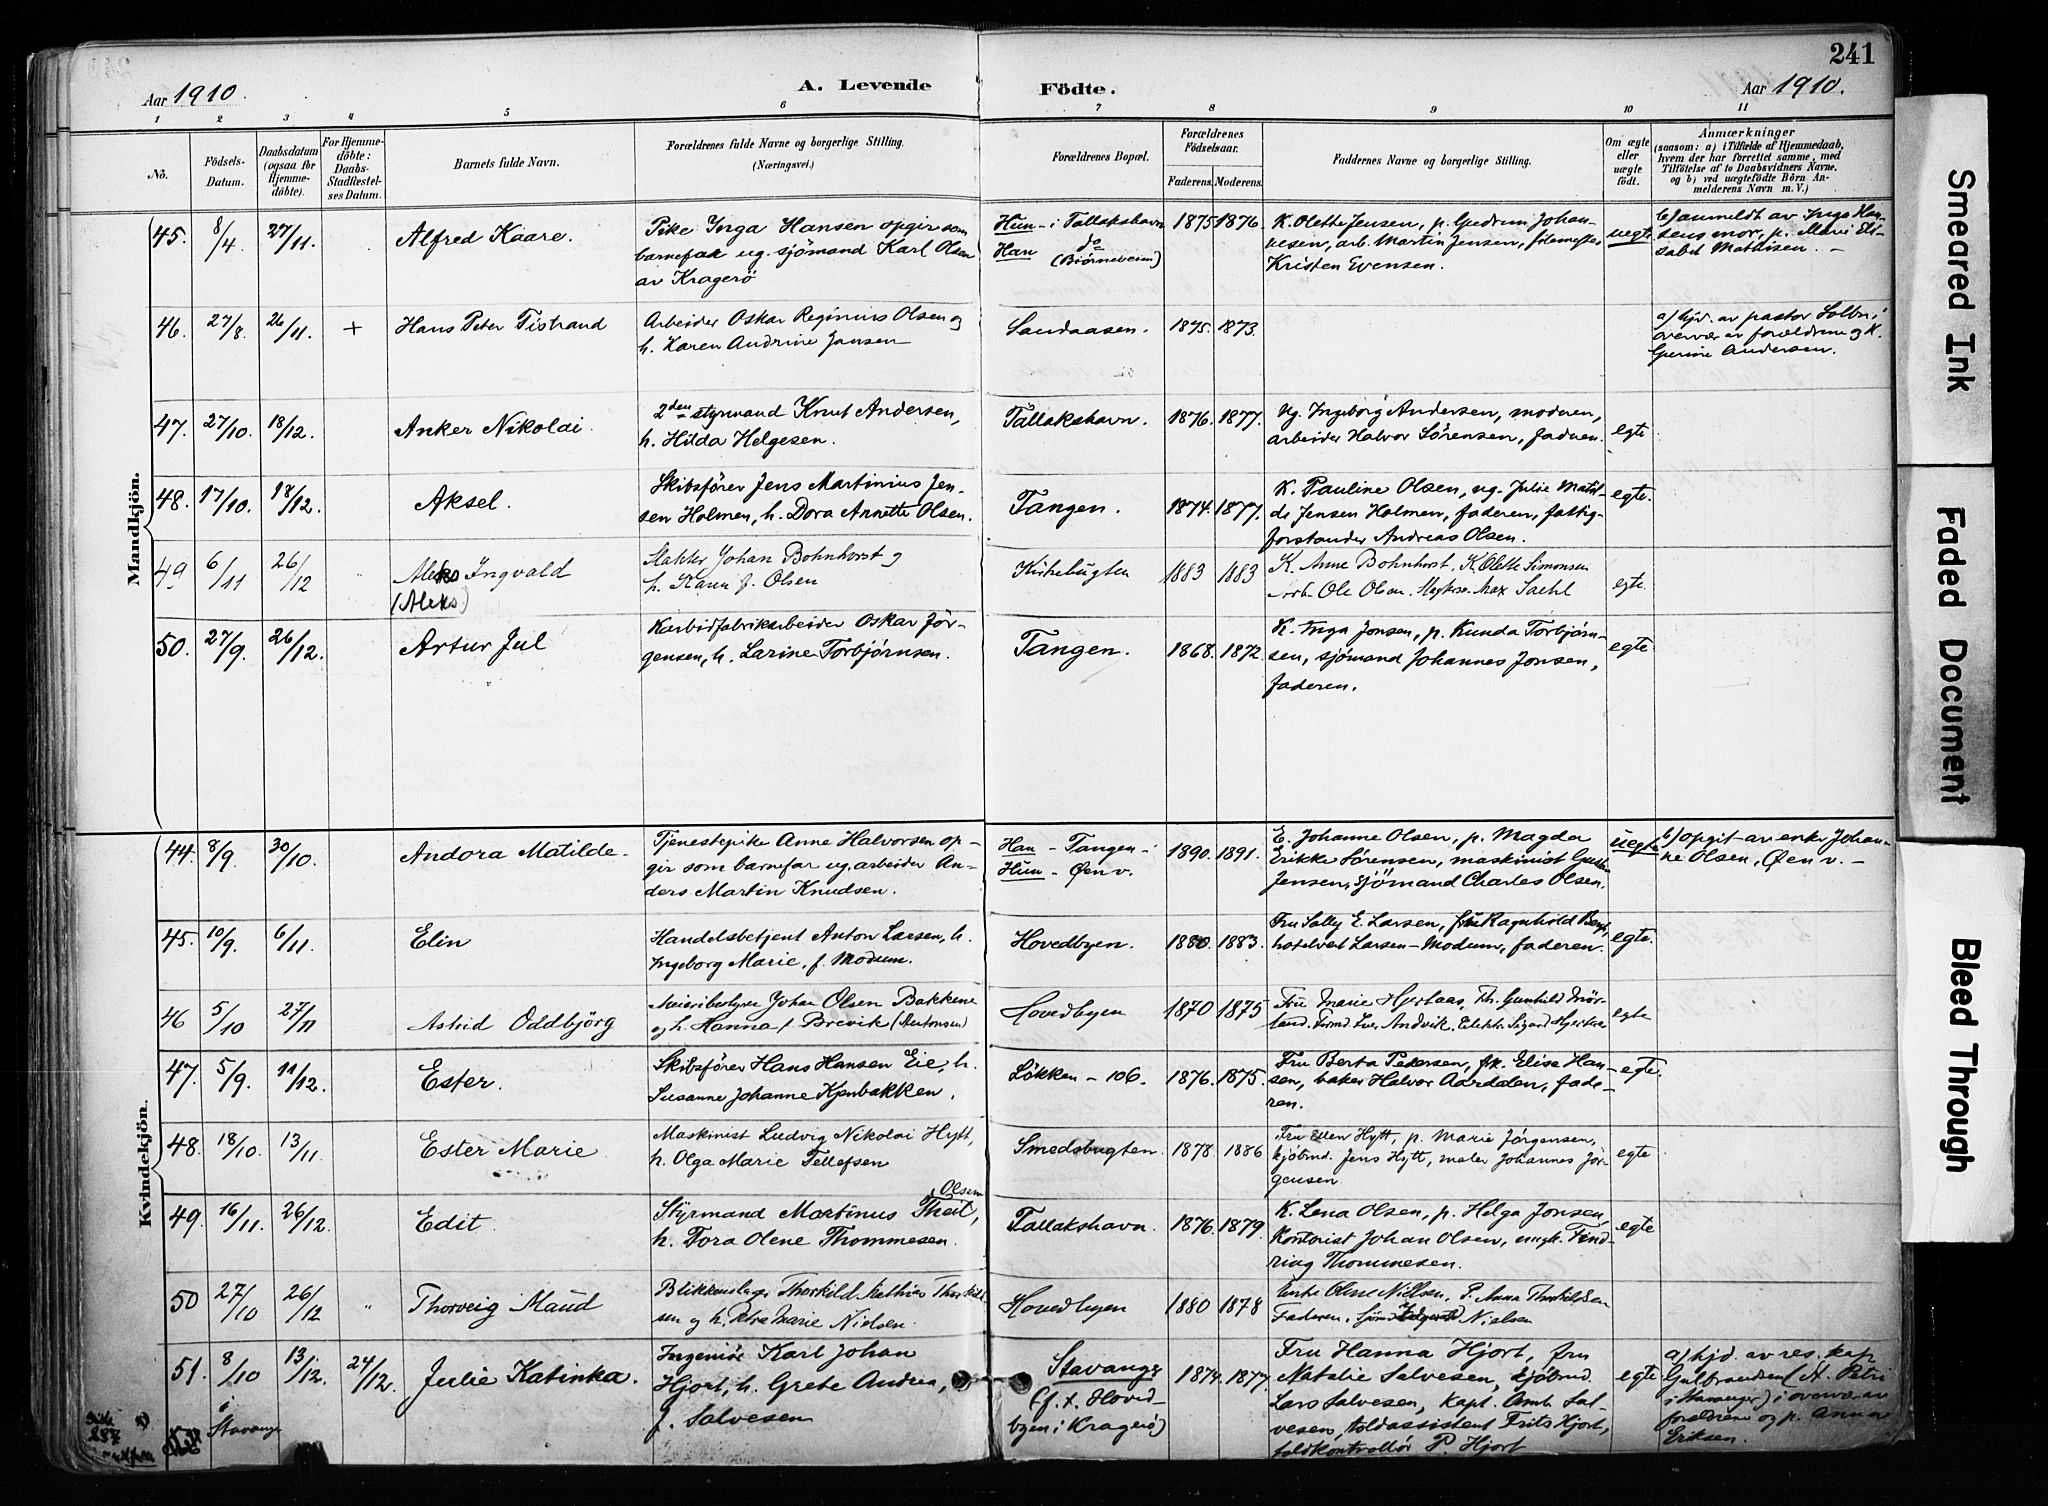 241
Aar 1910.
A. Levende
Födte.
Aar 1910.
1 2 3 4 5 6 7 8 9 10 11
No.
Födsels-
Datum.
Daabsdatum
(ogsaa for
Hjemme-
döbte).
For Hjemme-
döbte:
Daabs-
Stadfæstel-
ses Datum.
Barnets fulde Navn.
Forældrenes fulde Navne og borgerlige Stilling.
(Næringsvei.)
Forældrenes Bopæl.
Forældrenes
Födselsaar.
Faderens. Moderens.
Faddernes Navne og borgerlige Stilling.
Om ægte
eller
uægte
födt.
Anmærkninger
(saasom: a) i Tilfælde af Hjemmedaab,
hvem der har forrettet samme, med
Tilföielse af to Daabsvidners Navne,
og b) ved uægtefödte Börn An-
melderens Navn m. V.)
Mandkjön.
45. 8/4 27/11. Alfred Kaare.
Pike Inga Hansen opgir som
barnefar ug. sjömand Karl Olsen
av Kragerö
Hun - i Tallakshavn
Han do
(Biörneveien)
1875 1876.
K. Olette Jensen, p. Gudrun Johan-
nesen, arb. Martin Jensen,
Kristen Evensen.
uegte
b) anmeldt av Inga Han-
sens mor, p. Marie Eli-
sabet Mathisen. -
46. 27/8. 26/11. + Hans Peter Tistrand
Arbeider Oskar Reginius Olsen og
h. Karen Andrine Jansen
Sandaasen.
1875. 1873.
a) hjd. av pastor Solbu i
overvær av forældrene og K.
Gurine Andersen.
47. 27/10. 18/12. Anker Nikolai.
2den styrmand Knut Andersen,
h. Hilda Helgesen.
Tallakshavn.
1876. 1877.
Ug. Ingeborg Andersen, moderen,
arbeider Halvor Sörensen, faderen.
egte
48. 17/10. 18/12. Aksel.
Skibsförer Jens Martinius Jen-
sen Holmen, h. Dora Annette Olsen.
Tangen.
1874. 1877.
K. Pauline Olsen, ug. Julie Matil-
de Jensen Holmen, faderen, fattig-
forstander Andreas Olsen.
egte.
49 6/11 26/12 Ingvald
(Aleks)
Slakter Johan Bohnhorst og
h. Karen f. Olsen
Kirkebugten
1883 1883
K. Anne Bohnhorst, K. Olette Simonsen
Arb. Ole Olsen. Max Saehl
egte.
50. 27/9. 26/12. Artur Jul
Karbidfabrikarbeider Oskar Jör-
gensen, h. Larine Torbjörnsen.
Tangen.
1868. 1872.
K. Inga Jonsen, p. Kunda Torbjörn-
sen, sjömand Johannes Jonsen,
faderen.
egte.
Kvindekjön.
44. 8/9. 30/10. Andora Matilde.
Tjenestepike Anne Halvorsen op-
gir som barnefar ug. arbeider An-
ders Martin Knudsen.
Han - Tangen -
Hun - Øen v.
1890. 1891.
E. Johanne Olsen, p. Magda
Erikke Sörensen, maskinist Gustav
Jensen, sjömand Charles Olsen.
uegte
b) opgit av enke Johan-
ne Olsen, Øen v. -
45. 10/9. 6/11. Elin
Handelsbetjent Anton Larsen, h.
Ingeborg Marie, f. Modum.
Hovedbyen.
1880. 1883.
Fru Sally E. Larsen, fru Ragnhold Berg,
hotelvert Larsen-Modum, faderen.
egte.
46 5/10 27/11 Astrid Oddbjörg
Meieribestyrer Johan Olsen Bakkene
og h. Hanna f. Brevik (Antonsen)
Hovedbyen
1870 1875
Fru Marie Hjertaas, Frk. Gunhild Mör-
land. Iver Andvik. Sigurd Hjertaas
egte
47. 5/9. 11/12. Ester.
Skibsförer Hans Hansen Eie, h.
Susanne Johanne Kjenbakken.
Lökken - 106.
1876. 1875.
Fru Berta Pedersen, frk. Elise Han-
sen, baker Halvor Aardalen, fade-
ren.
egte.
48. 18/10. 13/11. Ester Marie
Maskinist Ludvig Nikolai Hytt,
h. Olga Marie Tellefsen
Smedsbugten.
1878. 1886
Fru Ellen Hytt, p. Marie Jörgensen,
kjöbmd. Jens Hytt, maler Johannes Jör-
gensen
egte
49. 16/11. 26/12. Edit.
Olsen
Styrmand Martinus Theil,
h. Tora Olene Thommesen.
Tallakshavn.
1876. 1879.
K. Lena Olsen, p. Helga Jonsen,
Kontorist Johan Olsen, ungk. Find
Thommesen.
egte
50 27/10 26/12 " Thorveig Maud
Blikkenslager Thorkild Mathias Thorkild-
sen og h. Petra Marie Nielsen.
Hovedbyen
1880 1878
Enke Oline Nielsen, P. Anna Thorkildsen
Faderen. Nielsen
51. 8/10 13/12. 24/12. Julie Katinka.
i
Stavanger
Ingeniör Karl Johan
Hjort, h. Grete Andrea,
f. Salvesen
Stavanger
(f. t. Hoved-
byen i Kragerö)
1874. 1877.
Fru Hanna Hjort, fru
Natalie Salvesen, kjöbmd.
Lars Salvesen, kapt. Amb. Sal-
vesen, toldassistent Frits Hjort,
toldkontrollör P. Hjort
egte
a) hjd. av res. kap.
Gulbrandsen (St. Petri
i Stavanger) i overvær av
forældrene og p. Anna
Eriksen.
287
Smeared Ink
Faded Document
Bleed Through